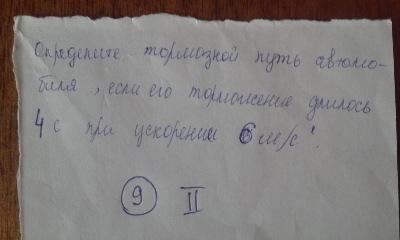 Определите тормозной путь автомо-
биля, если его торможение длилось
4 с при ускорении 6 м/с².
9 II